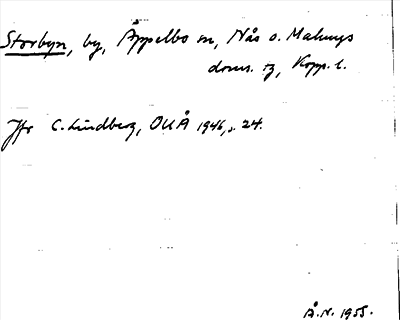 Storbyn, by, Äppelbo sn, Nås o. Malungs
doms. tg, Kopp. l.
Jfr C. Lindberg, OUÅ 1946, s. 24.
Å.N. 1955.